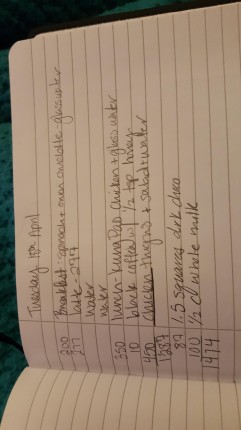 Tuesday 18th April
200 Breakfast: spinach + onion omelette - glass water
277 latte - 277
water
water
350 lunch - Kung Pao chicken + glass water
10 black coffee w/ 1/2 tsp honey
450 chicken thighs + salad + water
1287
87 1.5 squares drk choco
100 1/2 c whole milk
1474